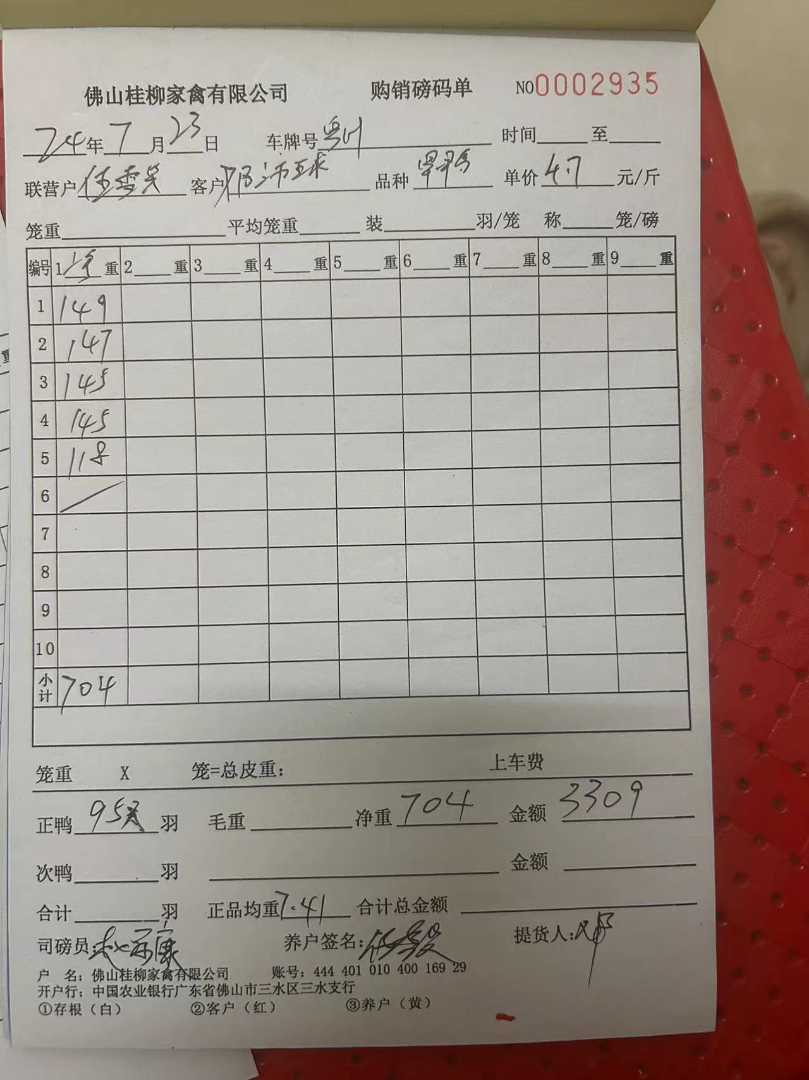 佛山桂柳家禽有限公司 购销磅码单 NO0002935
24年7月23日 车牌号 时间 至
联营户 客户 品种 单价4.7元/斤
笼重 平均笼重 装 羽/笼 称 笼/磅
编号 1 重 2 重 3 重 4 重 5 重 6 重 7 重 8 重 9 重
1 149
2 147
3 145
4 145
5 118
6
7
8
9
10
小计 704
笼重 X 笼=总皮重: 上车费
正鸭 95 羽 毛重 净重 704 金额 3309
次鸭 羽 金额
合计 羽 正品均重 7.41 合计总金额
司磅员: 养户签名: 提货人:
户 名: 佛山桂柳家禽有限公司 账号: 444 401 010 400 169 29
开户行: 中国农业银行广东省佛山市三水区三水支行
①存根(白) ②客户(红) ③养户(黄)